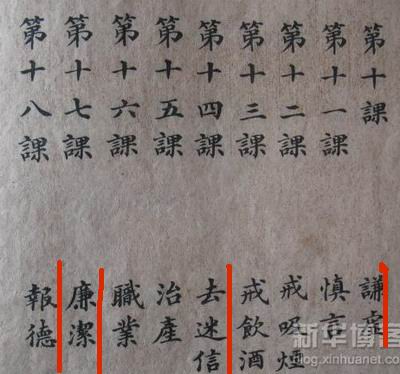 第十課 謙虛
第十一課 慎言
第十二課 戒吸煙
第十三課 戒飲酒
第十四課 去迷信
第十五課 治產
第十六課 職業
第十七課 廉潔
第十八課 報德
新华博客
blog.xinhuanet.com